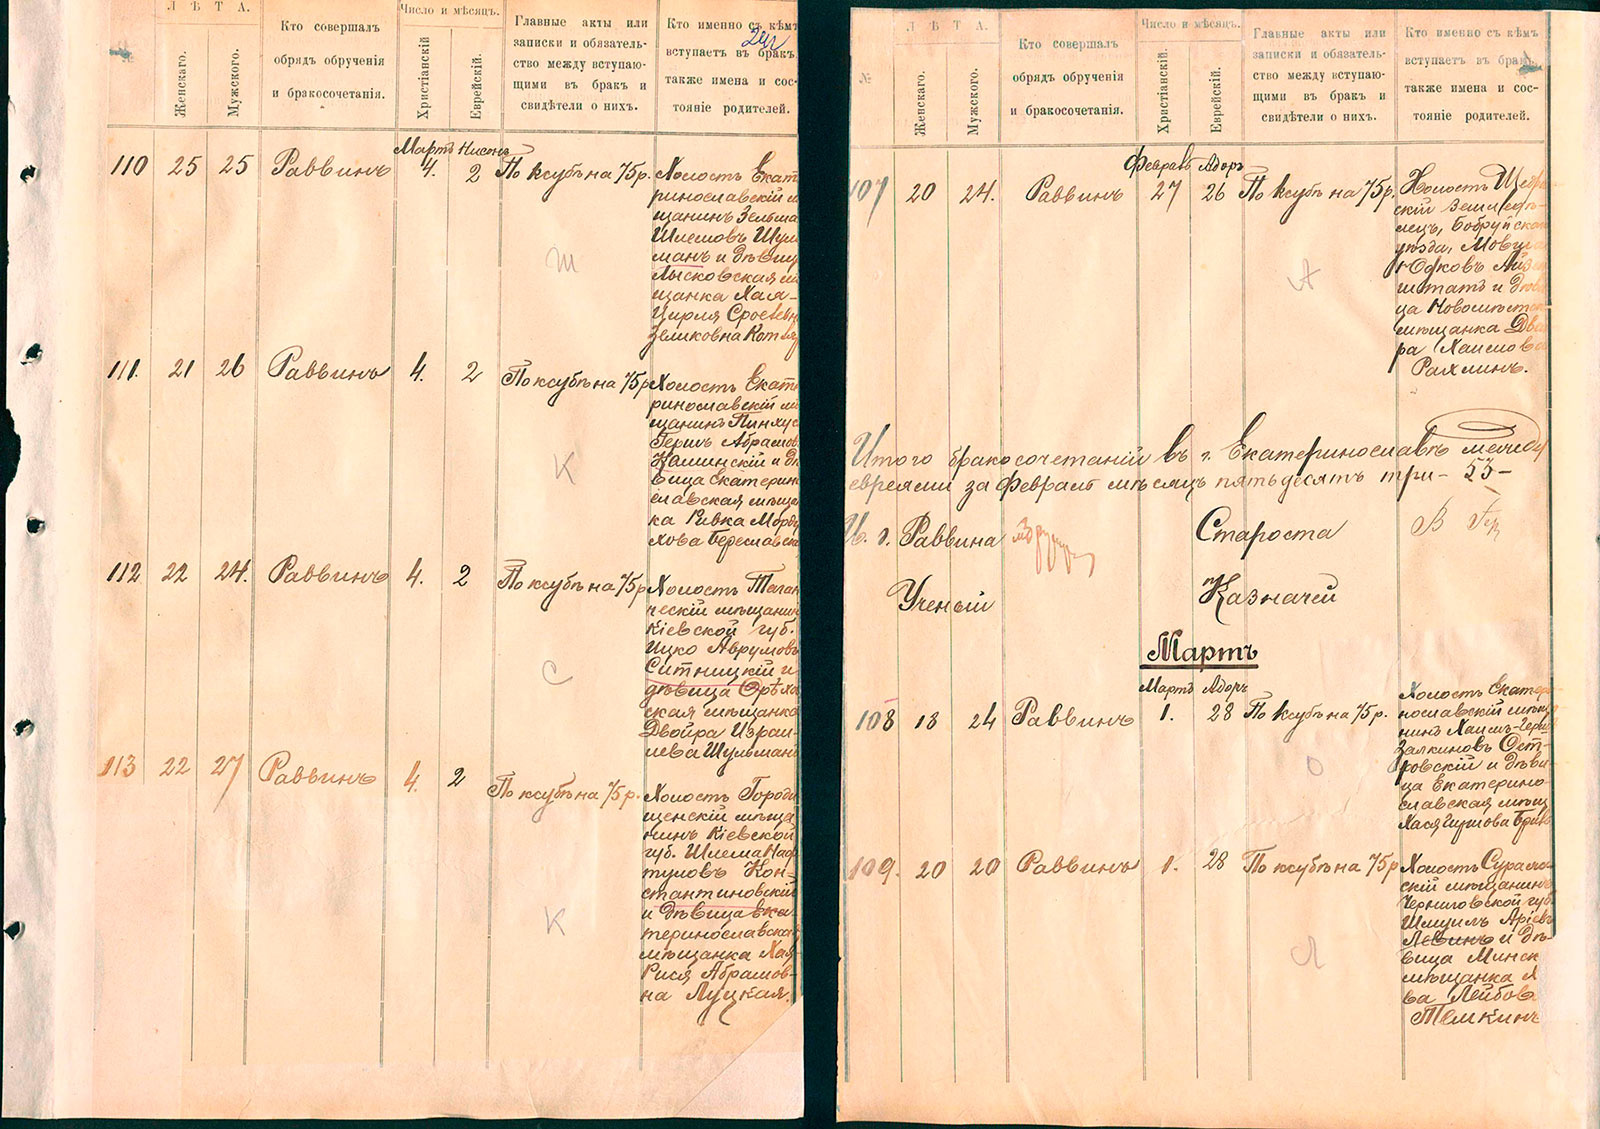 ЛѢТА.
Женскаго.
Мужского.
Кто совершалъ
обрядъ обрученія
и бракосочетанія.
Число и мѣсяцъ.
Христіанскій
Еврейскій.
Главные акты или
записки и обязатель-
ство между вступаю-
щими въ бракъ и
свидѣтели о нихъ.
Кто именно съ кѣмъ
вступаетъ въ бракъ,
также имена и сос-
тояніе родителей.
Мартъ Нисонъ
110 25 25 Раввинъ 4. 2 По ксубѣ на 75 р.
Холостъ Екат
ринославскій м
щанинъ Зельма
Шлемовъ Шул
манъ и дѣвиц
Лысковская м
щанка Хая-
Цирля Сроелевн
Зеликовна Котля
Ш
111. 21 26 Раввинъ 4. 2 По ксубѣ на 75 р
Холостъ Екате
ринославскій м
щанинъ Пинхус
Гершъ Абрамов
Каминскій и дѣ
вица Екатерин
славская мѣща
ка Ривка Морду
хова Береславск
К
112 22 24. Раввинъ 4. 2 По ксубѣ на 75 р
Холостъ Таган
ческій мѣщанин
Кіевской губ.
Ицко Аврумовъ
Ситницкій и
дѣвица Орѣхо
ская мѣщанка
Двойра Израи-
лева Шульман
С
113 22 27 Раввинъ 4. 2 По ксубѣ на 75 р.
Холостъ Городи
щенскій мѣща
нинъ Кіевской
губ. Шлема Наф
туловъ Кон-
стантиновскій
и дѣвица Ека
теринославская
мѣщанка Хая
Рися Абрамов-
на Луцкая.
К
№
ЛѢТА.
Женскаго.
Мужского.
Кто совершалъ
обрядъ обрученія
и бракосочетанія.
Число и мѣсяцъ.
Христіанскій.
Еврейскій.
Главные акты или
записки и обязатель-
ство между вступаю-
щими въ бракъ и
свидѣтели о нихъ.
Кто именно съ кѣмъ
вступаетъ въ бракъ,
также имена и сос-
тояніе родителей.
Февраль Адоръ
107 20 24. Раввинъ 27 26 По ксубѣ на 75 р.
Холостъ Щедри
скій Земледѣ-
лецъ, Бобруйскаго
уѣзда, Мовша
Юдковъ Айзен
штатъ и дѣви
ца Новомѣстск
мѣщанка Двей
ра Хаимова
Рахлинъ.
А
Итого бракосочетаній въ г. Екатеринославѣ между
евреями за Февраль мѣсяцъ пятьдесятъ три - 53-
И. д. Раввина Староста
Ученый Казначей
Мартъ
Мартъ Адоръ
108 18 24 Раввинъ 1. 28 По ксубѣ на 75 р.
Холостъ Екатери
нославскій мѣща
нинъ Хаимъ-Герш
Залкиновъ Ост-
ровскій и дѣви-
ца Екатерино-
славская мѣщ
Хася Гиршова Брик
О
109. 20 20 Раввинъ 1. 28 По ксубѣ на 75 р
Холостъ Суражс
скій мѣщанинъ
Черниговской губ
Шмуилъ Аріевъ
Левинъ и дѣ-
вица Минск
мѣщанка
ва Лейбов
Темкинъ
Л